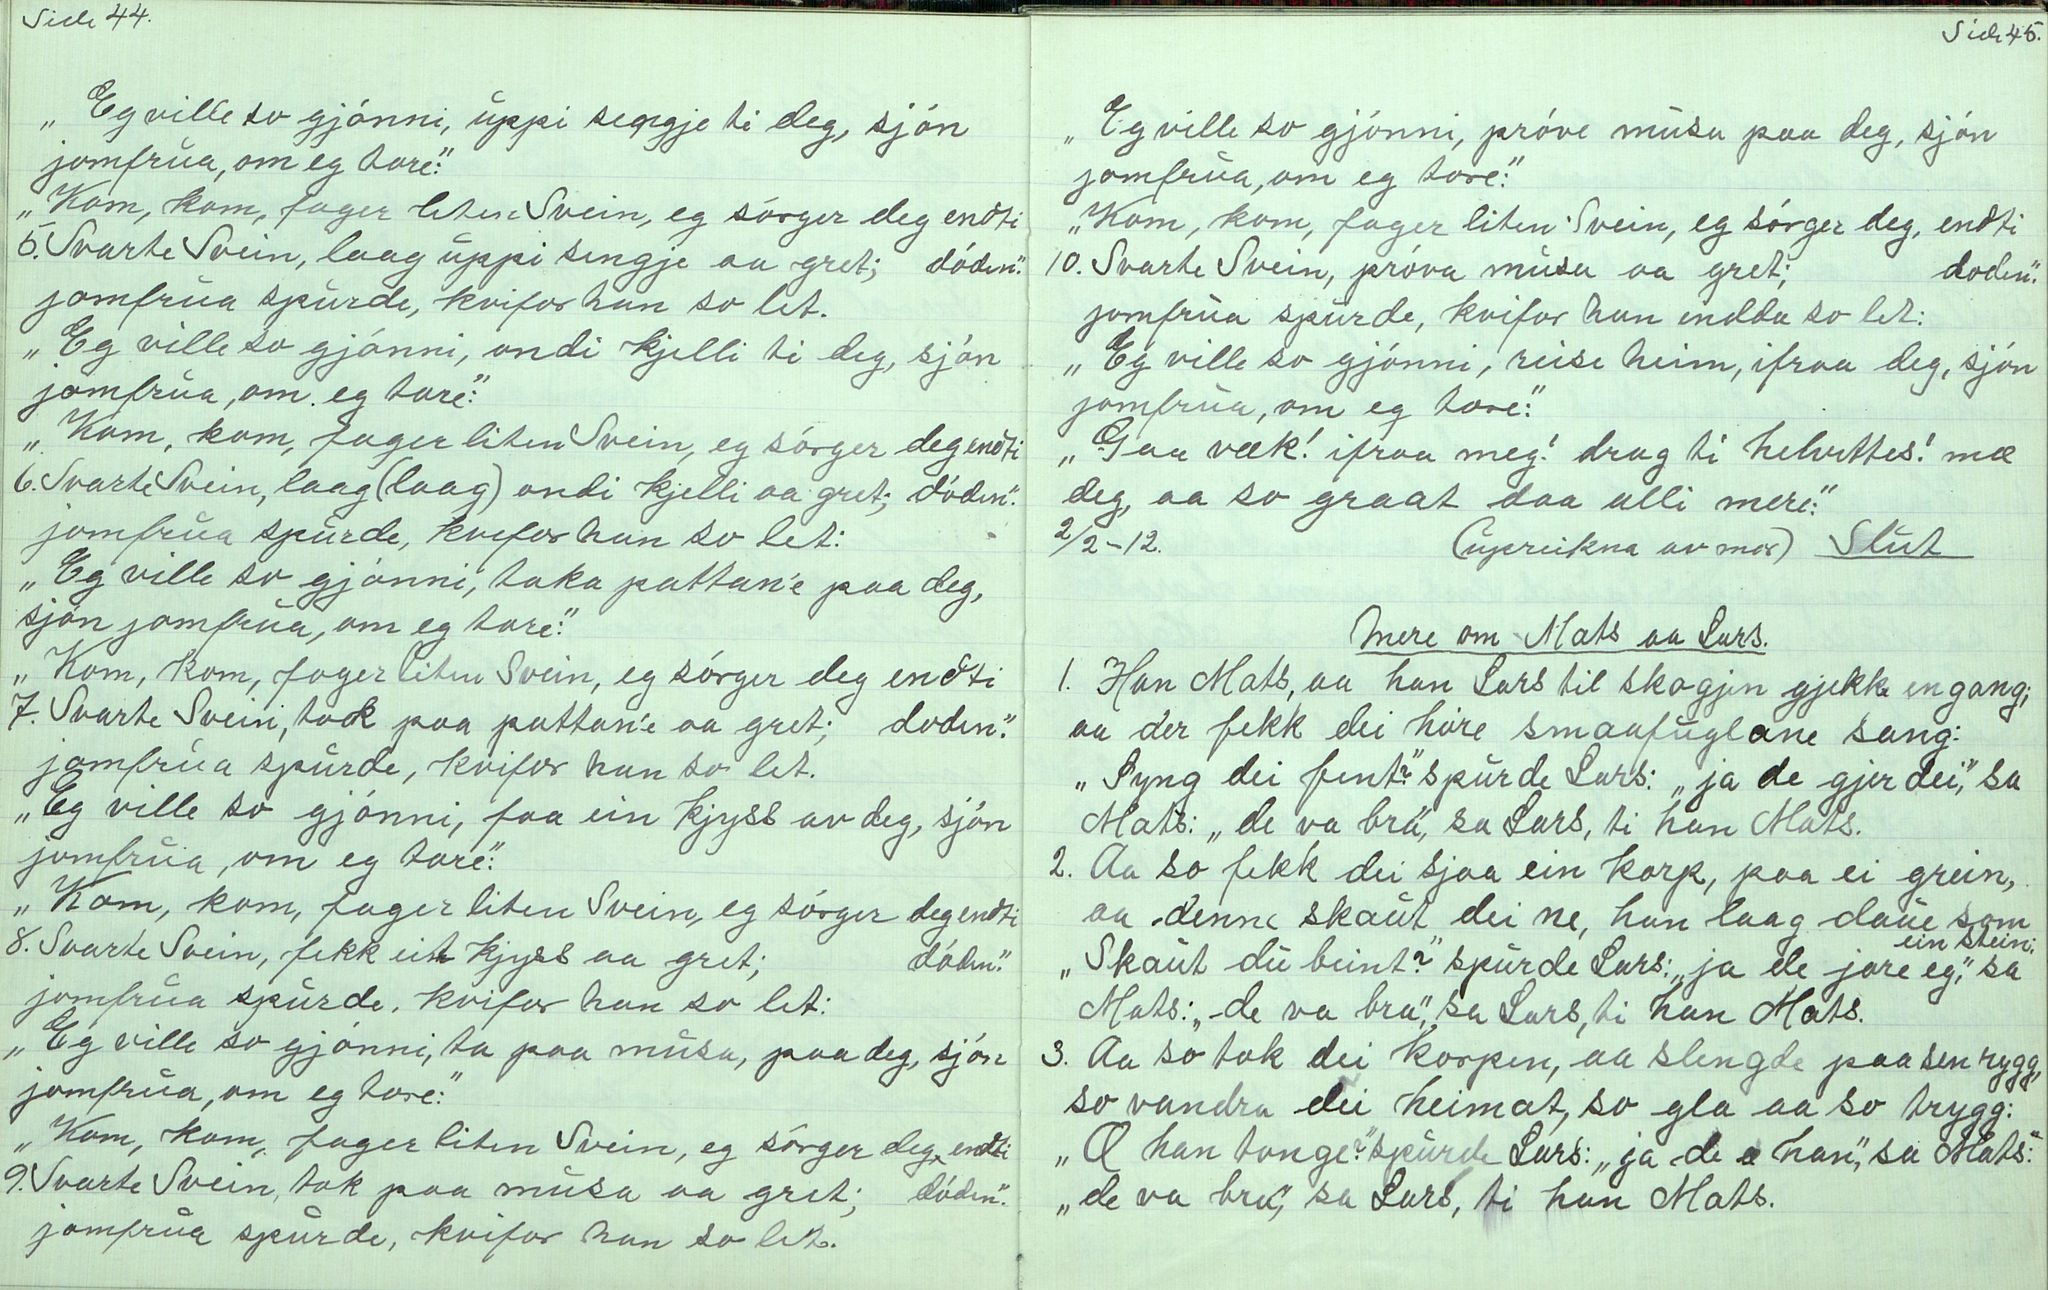 Side 44.
„Eg ville so gjónni, uppi seggje ti deg, sjón
jomfrua, om eg tore:"
„Kom, kom, fager liten Svein, eg sórger deg endti
5. Svarte Svein, laag uppi sengje aa gret; dóden".
jomfrua spurde, kvifor han so let.
„Eg ville so gjónni, ondi kjelli ti deg, sjón
jomfrua, om eg tore:"
„Kom, kom, fager liten Svein, eg sórger deg endti
6. Svarte Svein, laag (laag) ondi kjelli aa gret; dóden".
jomfrua spurde, kvefor han so let:
„Eg ville so gjónni, taka pattan'e paa deg,
sjón jomfrua, om eg tore:"
„Kom, kom, fager liten Svein, eg sórger deg endti
7. Svarte Svein, tok paa pattan'e aa gret; doden".
jomfrua spurde, kvifor han so let.
„Eg ville so gjónni, faa ein kjyss av deg, sjón
jomfrua, om eg tore:"
„Kom, kom, fager liten Svein, eg sórger deg endti
8. Svarte Svein, fekk eit kjyss aa gret; dóden".
jomfrua spurde, kvifor han so let:
„Eg ville so gjónni, ta paa musa, paa deg, sjón
jomfrua, om eg tore:"
„Kom, kom, fager liten Svein, eg sórger deg, endti
9. Svarte Svein, tok paa musa aa gret; dóden".
jomfrua spurde, kvifor han so let.
Side 45.
„Eg ville so gjónni, próve musa paa deg, sjón
jomfrua, om eg tore:"
„Kom, kom, fager liten Svein, eg sórger deg, endti
10. Svarte Svein, próva musa aa gret; doden".
jomfrua spurde, kvifor han endda so let:
„Eg ville so gjónni, reise heim, ifraa deg, sjón
jomfrua, om eg tore:"
„Gaa væk! ifraa meg! drag ti helvittes! mæ
deg, aa so graat daa alli mere:"
2/2-12. (upreikna av mor) Slut
Mere om Mats aa Lars.
1. Han Mats, aa han Lars til skogjen gjekk engang;
aa der fekk dei hóre smaafuglane sang:
„Syng dei fent?" spurde Lars: „ja de gjer dei," sa
Mats: „de va bra", sa Lars, ti han Mats.
2. Aa so fekk dei sjaa ein korp, paa ei grein,
aa denne skaut dei ne, han laag daue som
ein stein:
„Skaut du beint?" spurde Lars: „ja de jore eg," sa
Mats: „de va bra", sa Lars, ti han Mats.
3. Aa so tok dei korpen, aa slengde paa sen rygg,
so vandra dei heimat, so gla aa so trygg:
„Æ han tonge?" spurde Lars: „ja de e han", sa Mats:
„de va bra", sa Lars, ti han Mats.